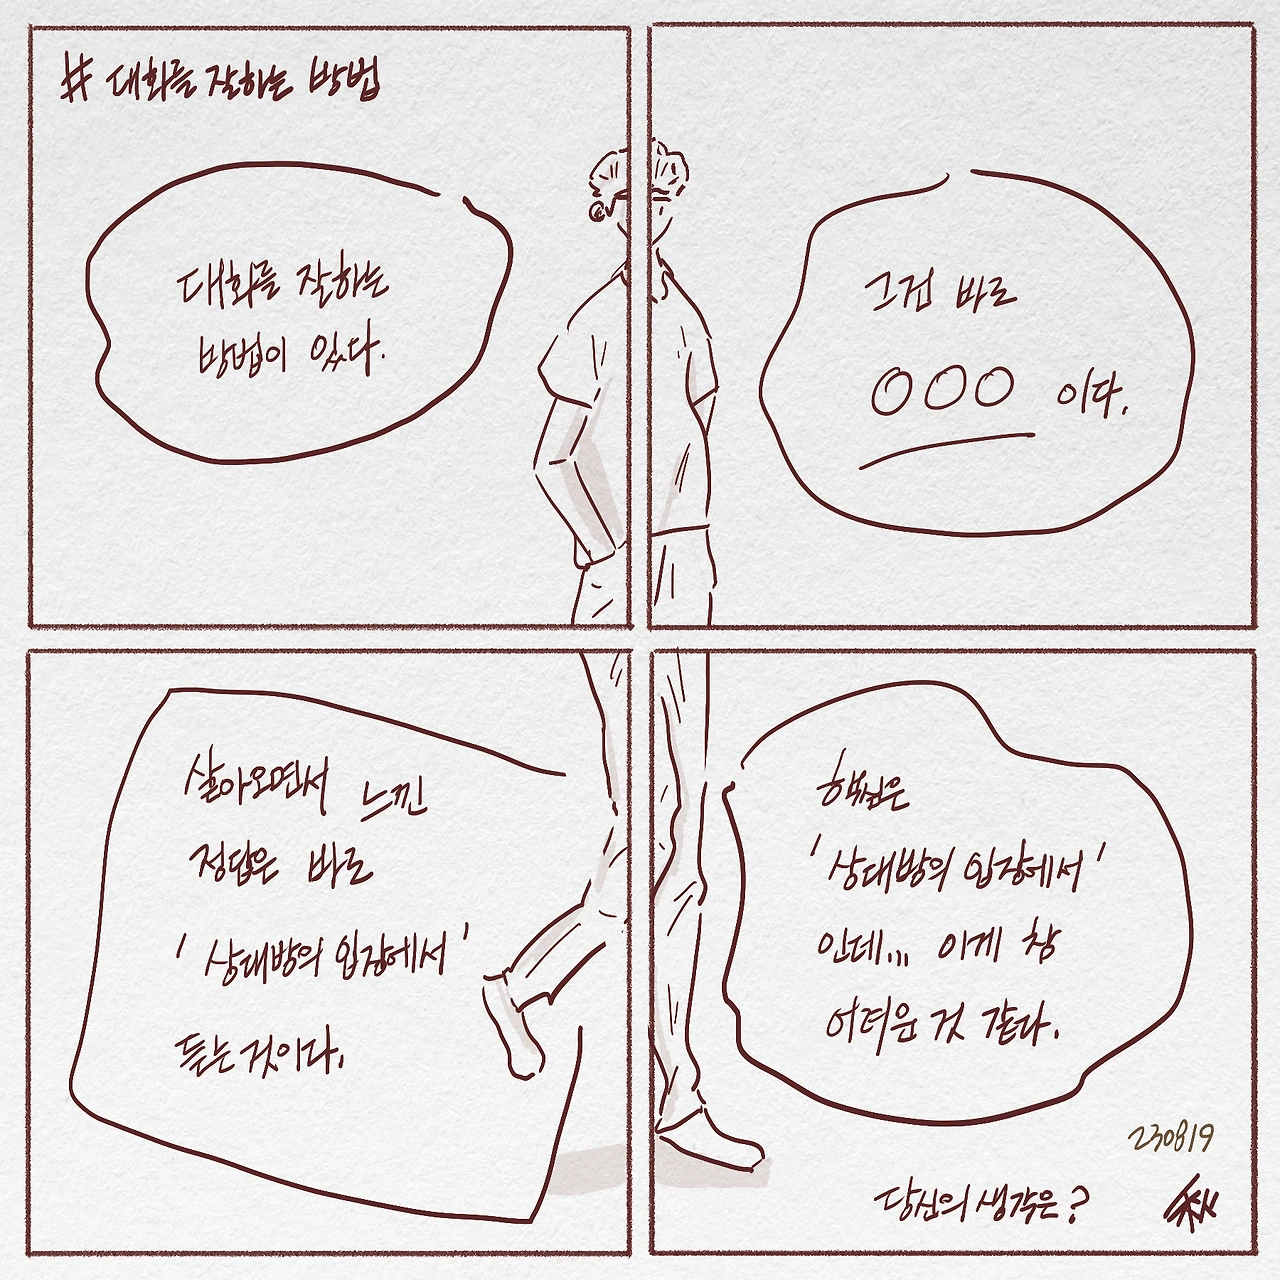 # 대화를 잘하는 방법
대화를 잘하는
방법이 있다.
그건 바로
OOO 이다.
살아오면서 느낀
정답은 바로
'상대방의 입장에서'
듣는것이다.
핵심은
'상대방의 입장에서'
인데... 이게 참
어려운 것 같다.
230819
당신의 생각은?